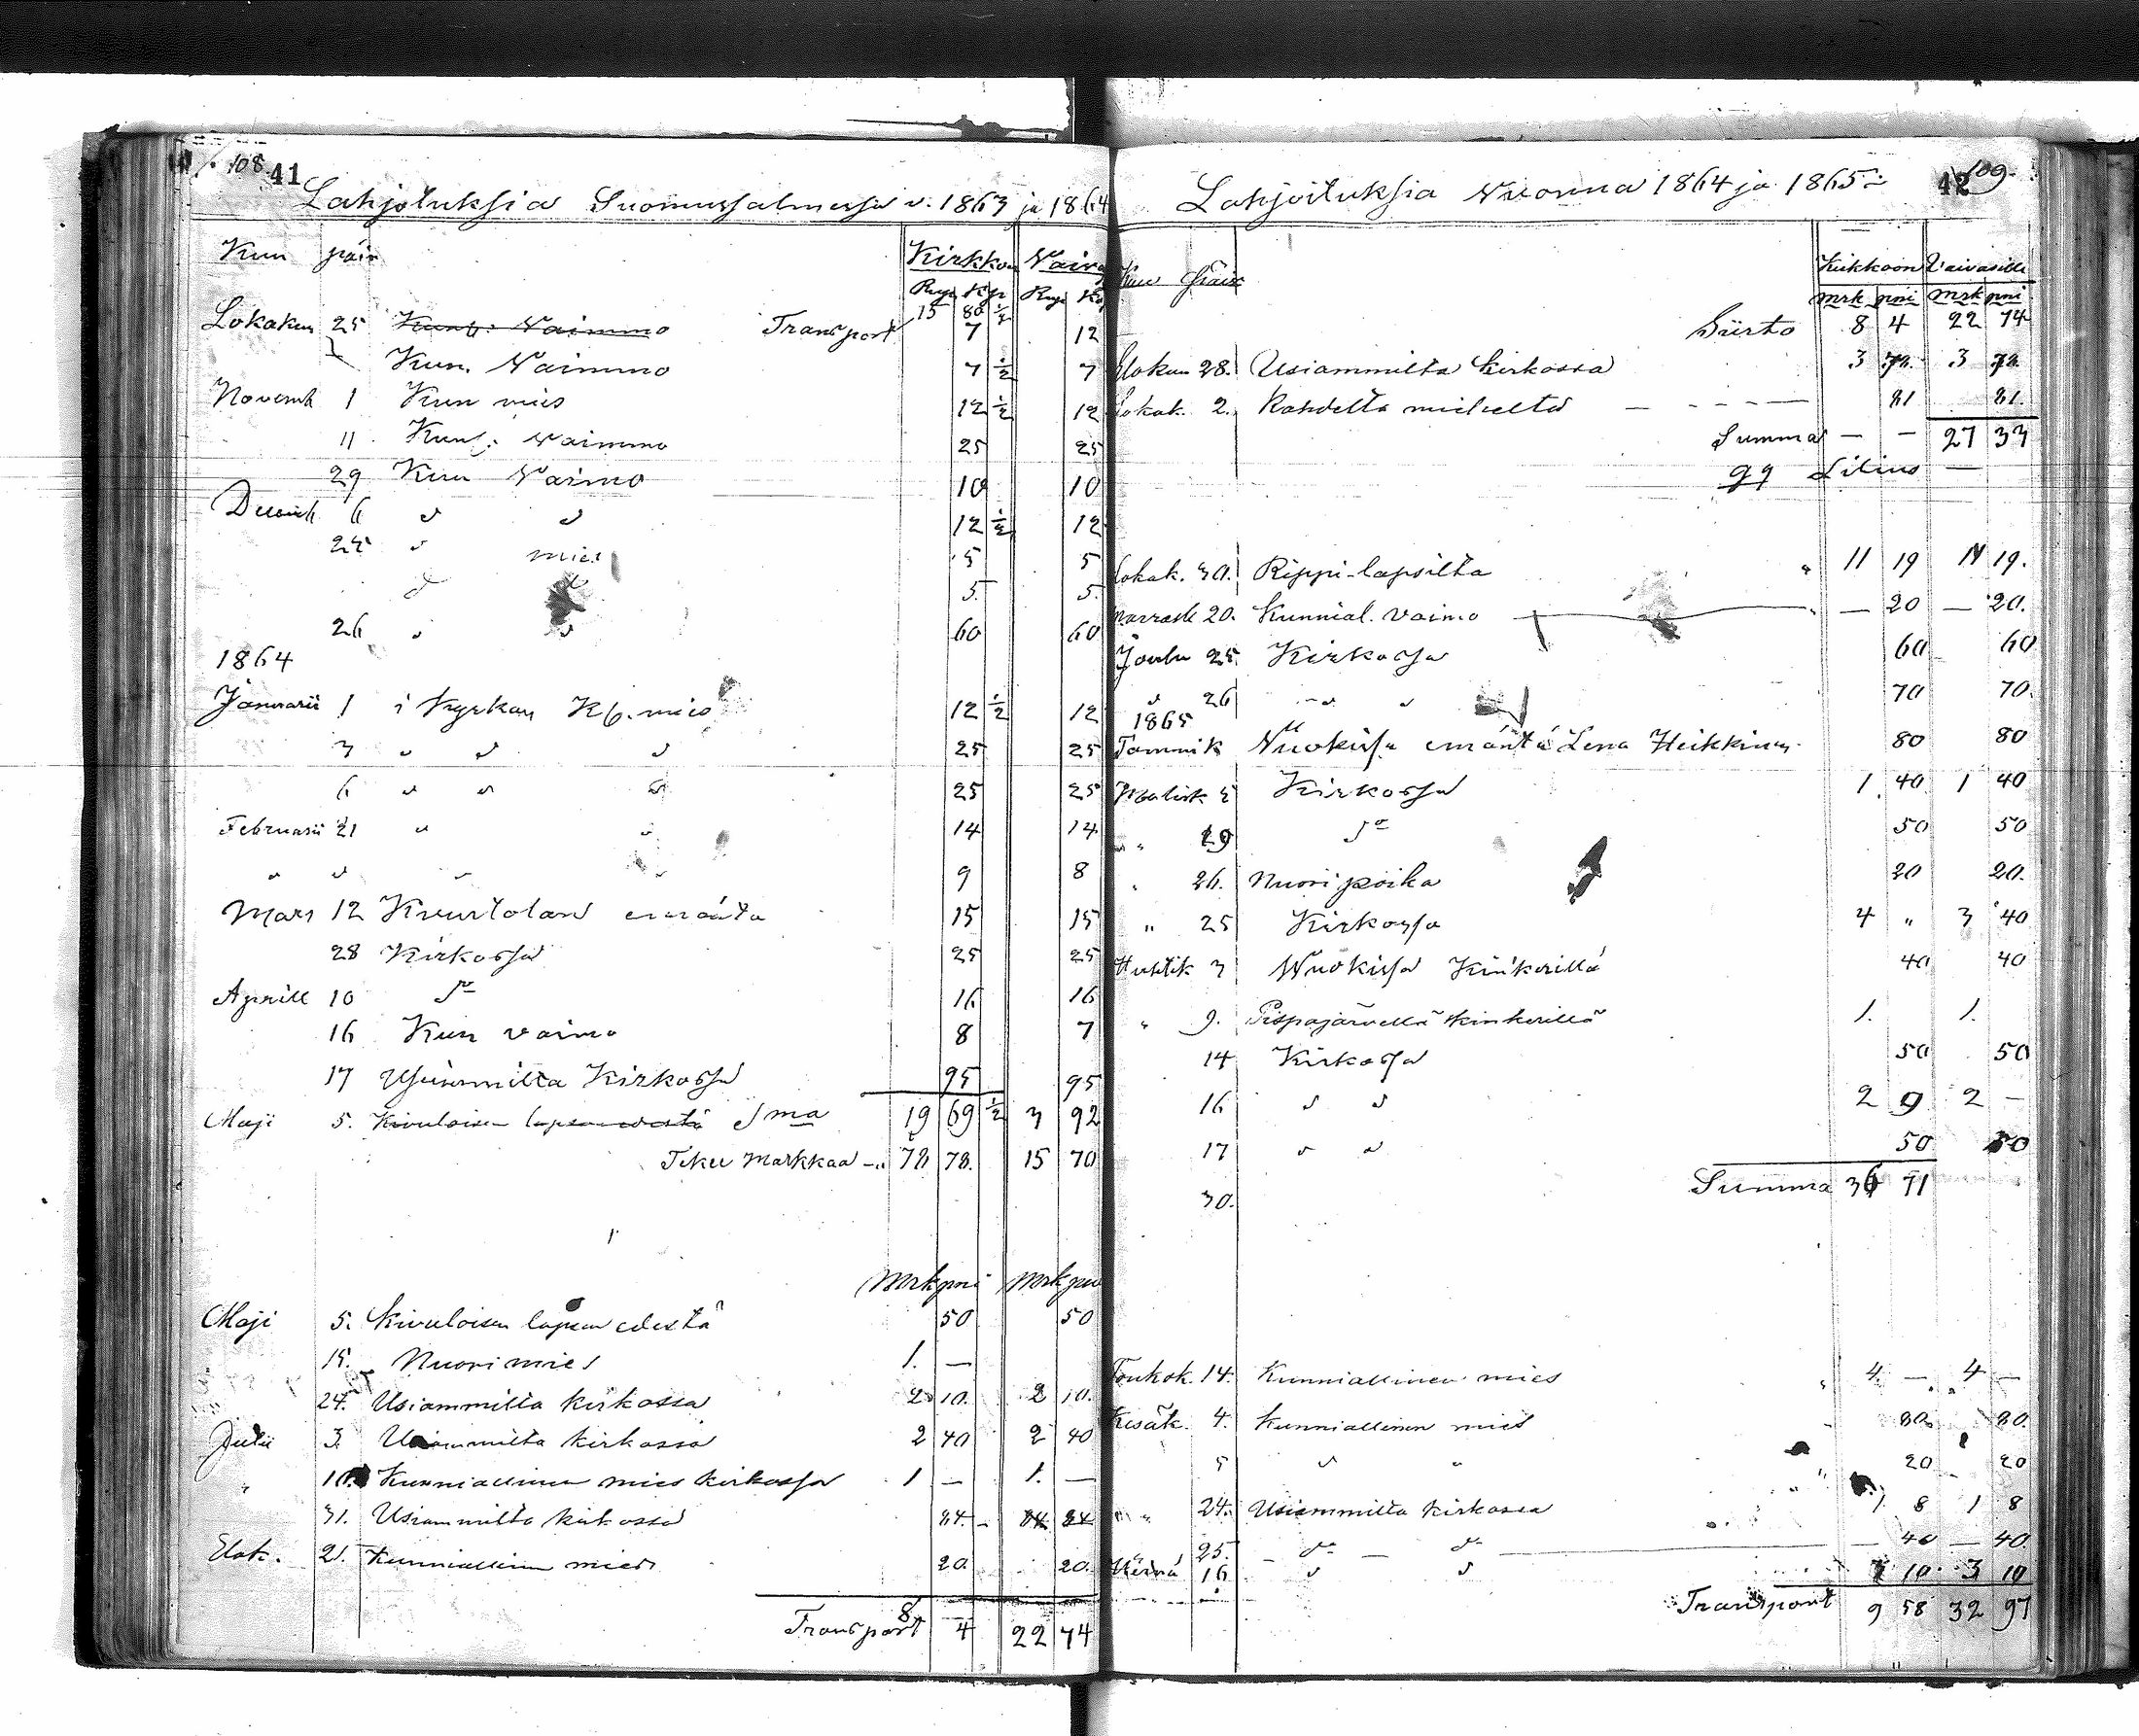 108 41
Lahjotuksia Suomussalmessa v. 1863 ja 1864
Kuu päiv Kirkkoon Vaiva
Rup Kp Rup Ko
Transport 15 80 ½
Lokakuu 25 Kunl: Vaimmo 7 12
Kun. Vaimmo 7 ½ 7
Novemb 1 Kun mies 12 ½ 12
11 Kunl: Vaimmo 25 25
29 Kun Vaimo 10 10
Decemb 6 " " 12 ½ 12
25 " mies 5 5
" " 5. 5.
26 " " 60 60
1864
Januarii 1 i kyrkan Kp. mies 12 ½ 12
3 " " " 25 25
6 " " " 25 25
Februarii 21 " " 14 14
" " " " 9 8
Mars 12 emäntä 15 15
28 Kirkossa 25 25
Aprill 10 do 16 16
16 Kun vaimo 8 7
17 Usiammilta Kirkossa 95 95
Maji 5. Kivuloisen lapsen edestä Sma 19 69 ½ 3 92
Tekee Markkaa -" 78 78. 15 70
Mrk pni Mrk pni
Maji 5. Kivuloisen lapsen edestä 50 50
15. Nuori mies 1. —
24. Usiammilta kirkossa 2 10. 2 10.
Julii 3. Usiammilta kirkossa 2 40 2 40
" 10. Kunniallinen mies kirkossa 1 — 1. —
31. Usiammilta kirkossa 84. - 84 84
Elok. 21. Kunniallinen mies 20. 20.
Transport 8 4 22 74
Lahjoituksia Vuonna 1864 ja 1865:
42 109
Kuu Päiv Kirkkoon Vaivasille
mrk pni mrk pni
Siirto 8 4 22 74
Elokuu 28. Usiammilta kirkossa 3 78. 3 78.
Lokak. 2. Kahdelta mieheltä — - - - — 81 81.
Summa — — 27 33
Lilius —
Lokak. 30. Rippi-lapsilta " 11 19 11 19.
Marrask 20. Kunnial. vaimo — 20 — 20.
Joulu 25. Kirkossa 60 60
" 26 " " 70 70.
1865
Tammik Vuokissa emäntä Lena Heikkinen 80 80
Maalisk 5 Kirkossa 1. 40 1 40
" " 19 do 50 50
" 26. Nuori poika 20 20.
" 25 Kirkossa 4 " 3 40
Huhtik 3 Vuokissa Kinkerillä 40 40
" 9. Pispajärvellä Kinkerillä 1. 1.
14 Kirkossa 50 50
16 " " 2 9 2 —
17 " " 50 50
30. Summa 36 71
Toukok. 14. Kunniallinen mies 4. — 4 —
Kesäk. 4. Kunniallinen mies 80. 80.
5 " " 20 20
" " 24. Usiammilta kirkossa 1 8 1 8
25. — do — do — 40 — 40
Heinä 16 " " 3 10. 3 10
Transport 9 58 32 97